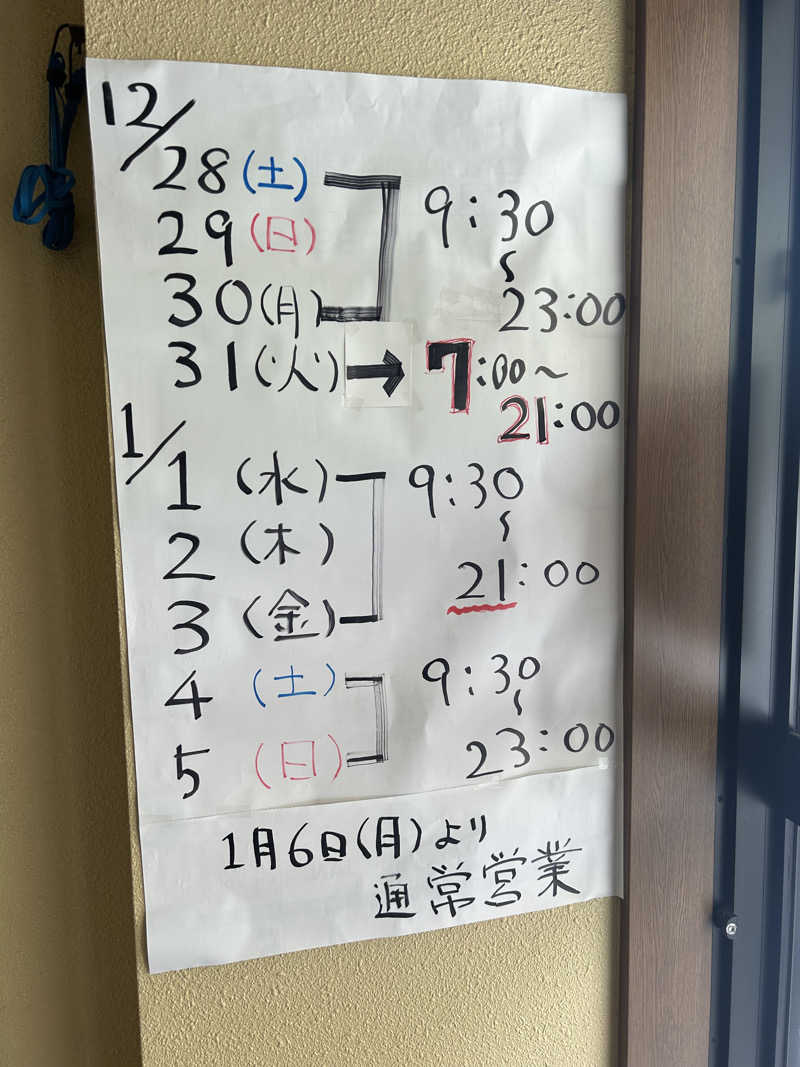 12/
28(土)
29(日)
30(月)
9:30
〜
23:00
31(火)→7:00〜
21:00
1/
1(水)
2(木)
3(金)
9:30
〜
21:00
4(土)
5(日)
9:30
〜
23:00
1月6日(月)より
通常営業